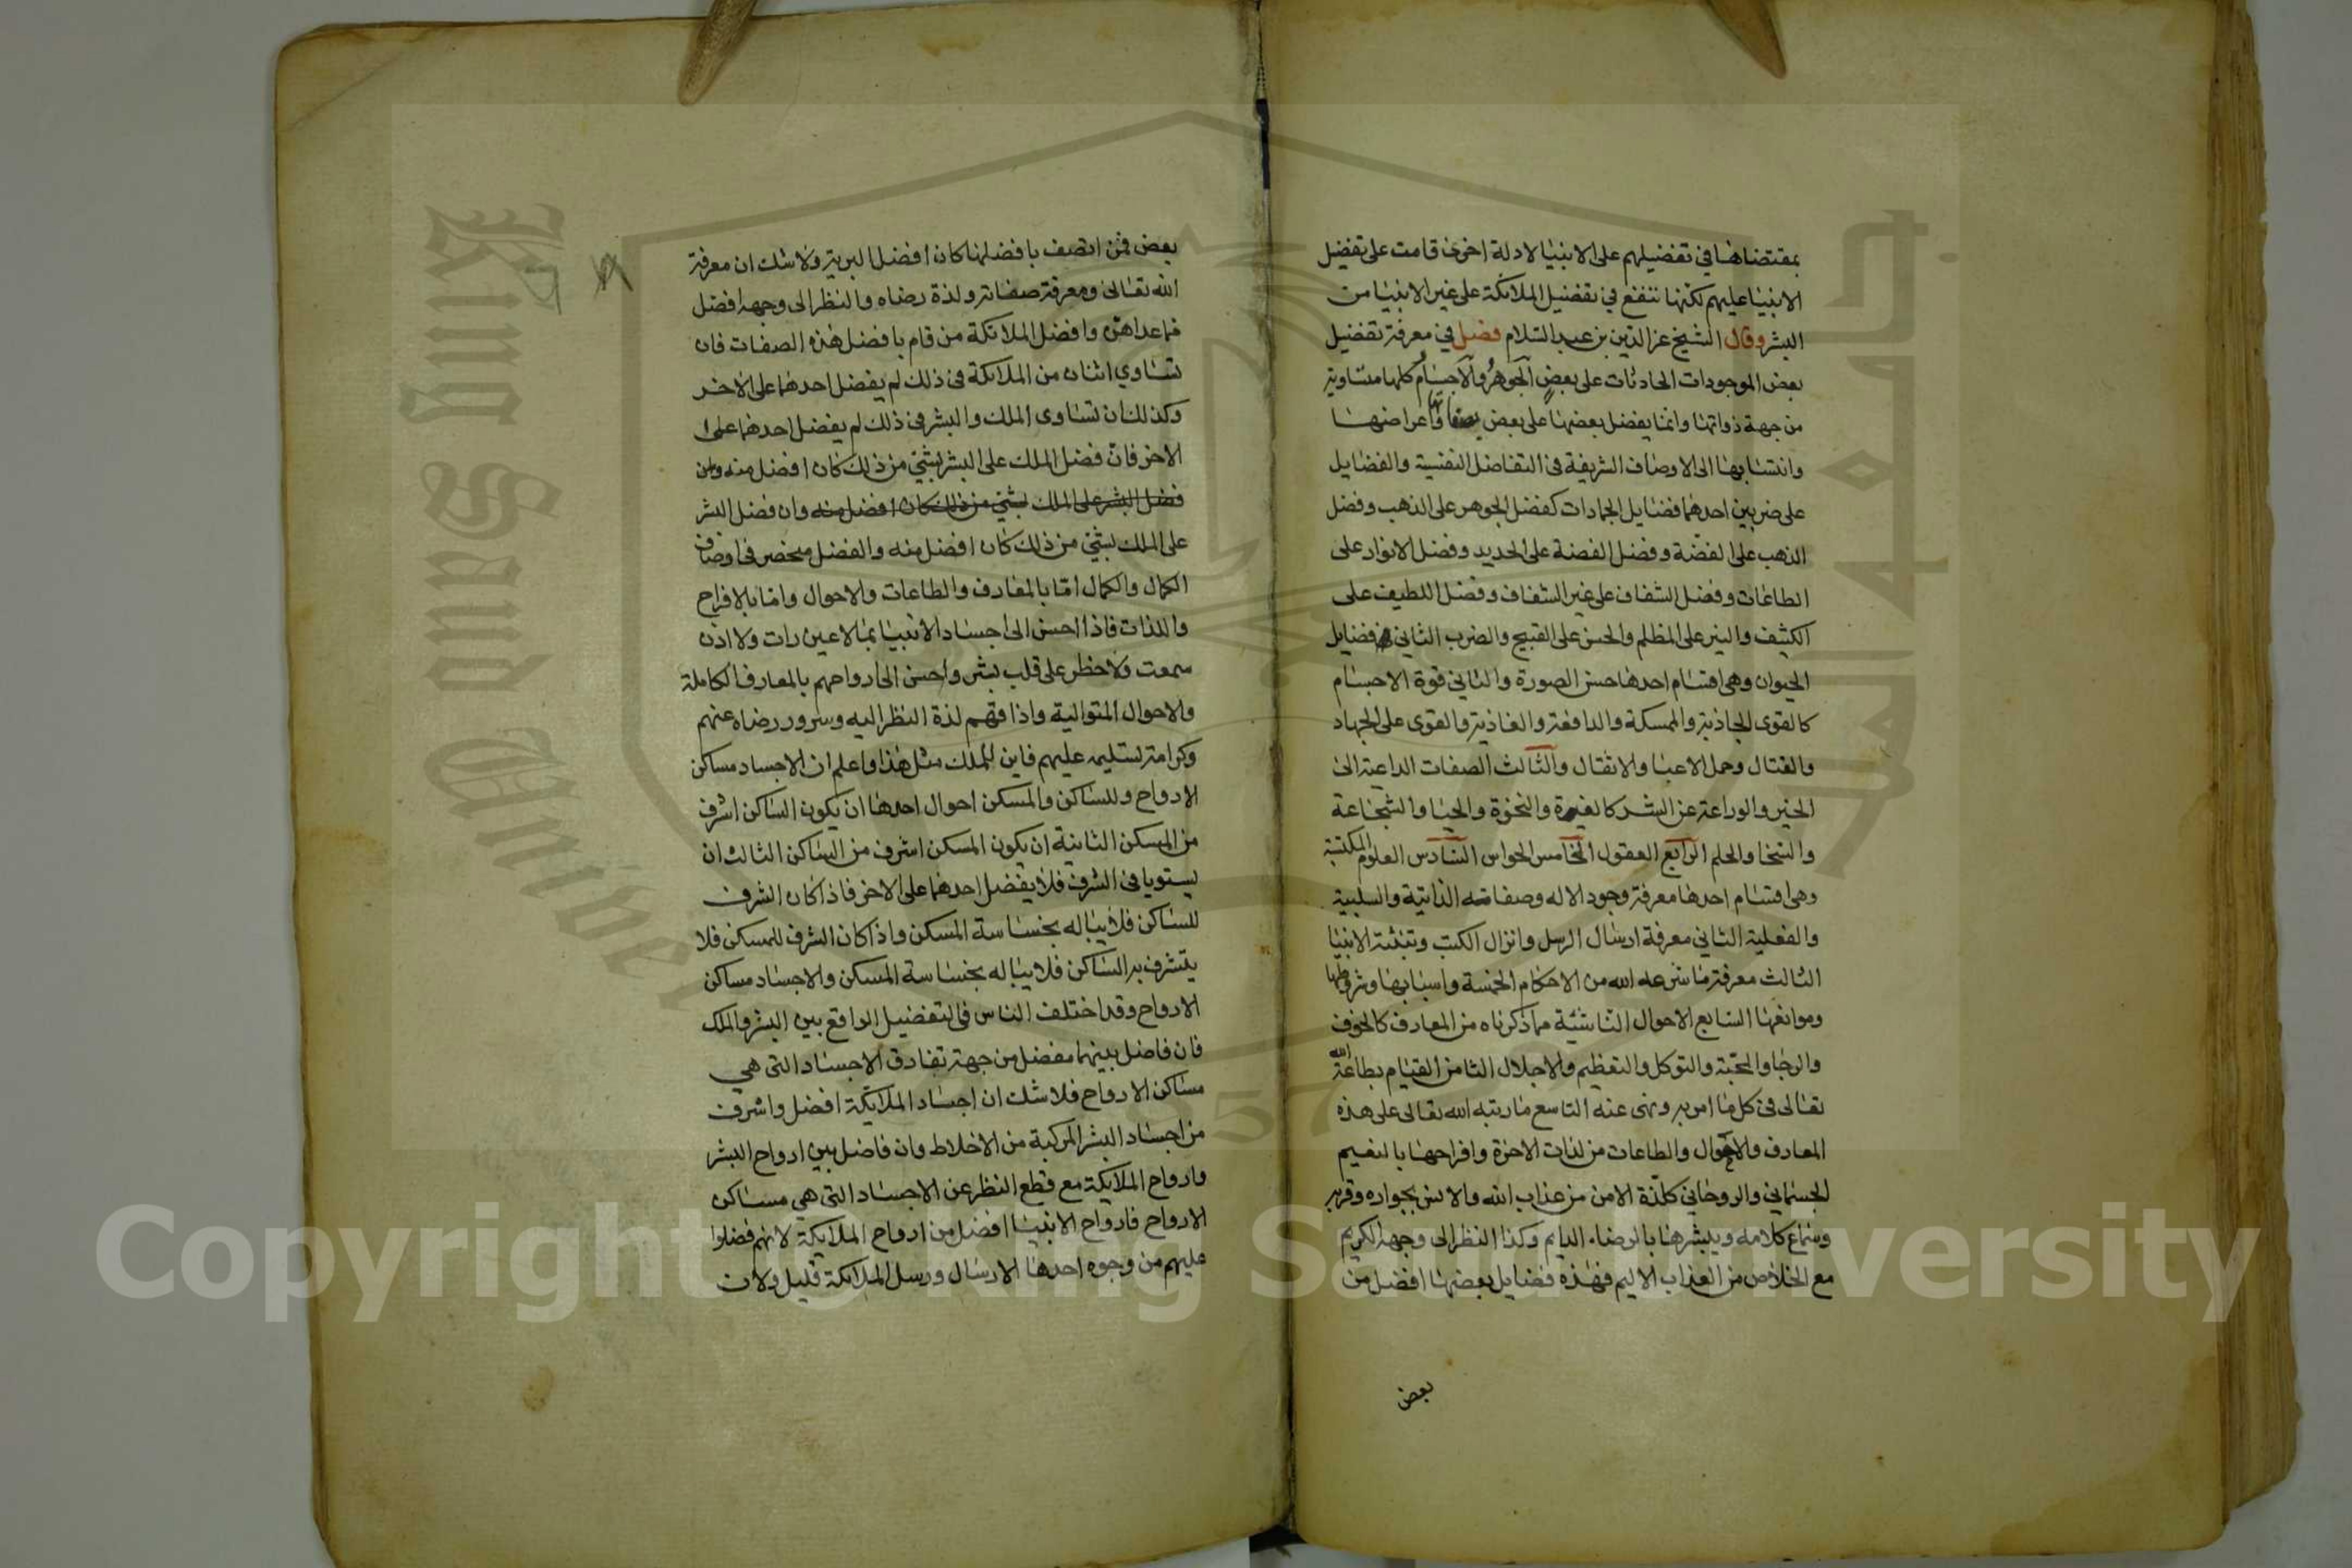 بمقتضاها في تفضيلهم على الانبيا لادلة اخرى قامت على تفضيل
الانبيا عليهم لكنها تنفع في تفضيل الملائكة على غير الانبيا من
البشر وقال الشيخ عز الدين بن عبد السلام فصل في معرفة تفضيل
بعض الموجودات الحادثات على بعض الجوهر والاجسام كلها متساوية
من جهة ذواتها وانما يفضل بعضها على بعض بصفاتها واعراضها
وانتسابها الى الاوصاف الشريفة في التفاضل النفسية والفضايل
على ضربين احدهما فضايل الجمادات كفضل الجوهر على الذهب وفضل
الذهب على الفضة وفضل الفضة على الحديد وفضل الانوار على
الظلمات وفضل الشفاف على غير الشفاف وفضل اللطيف على
الكثيف والنير على المظلم والحسن على القبيح والضرب الثاني فضايل
الحيوان وهي اقسام احدها حسن الصورة والثاني قوة الاجسام
كالقوى الجاذبة والممسكة والدافعة والغاذية والقوى على الجهاد
والقتال وحمل الاعبا والاثقال والثالث الصفات الداعية الى
الخير والوازعة عن الشر كالغيرة والنخوة والحيا والشجاعة
والسخا والحلم الرابع العقول الخامس الحواس السادس العلوم المكتسبة
وهي اقسام احدها معرفة وجود الاله وصفاته الذاتية والسلبية
والفعلية الثاني معرفة ارسال الرسل وانزال الكتب وتنبئة الانبيا
الثالث معرفة ما شرعه الله من الاحكام الخمسة واسبابها وشروطها
وموانعها السابع الاحوال الناشئة مما ذكرناه من المعارف كالخوف
والرجا والمحبة والتوكل والتعظيم والاجلال الثامن القيام بطاعة الله
تعالى في كل ما امر به ونهى عنه التاسع ما رتبه الله تعالى على هذه
المعارف والاحوال والطاعات من لذات الاخرة وافراحها بالنعيم
الجسماني والروحاني كلذة الامن من عذاب الله والانس بجواره وقربه
وسماع كلامه وتبشيرها بالرضاء الدايم وكذا النظر الى وجهه الكريم
مع الخلاص من العذاب الاليم فهذه فضايل بعضها افضل من
بعض
بعض فمن اتصف بافضلها كان افضل البرية ولا شك ان معرفة
الله تعالى ومعرفة صفاته ولذة رضاه والنظر الى وجهه افضل
مما عداهن وافضل الملائكة من قام بافضل هذه الصفات فان
تساوي اثنان من الملائكة في ذلك لم يفضل احدهما على الاخر
وكذلك ان تساوى الملك والبشر في ذلك لم يفضل احدهما على
الاخر فان فضل الملك على البشر بشي من ذلك كان افضل منه وان
فضل البشر على الملك بشي من ذلك كان افضل منه وان فضل البشر
على الملك بشي من ذلك كان افضل منه والفضل منحصر في اوصاف
الكمال والكمال اما بالمعارف والطاعات والاحوال واما بالافراح
واللذات فاذا احسن الى اجساد الانبيا بما لا عين رات ولا اذن
سمعت ولا خطر على قلب بشر واحسن الى ارواحهم بالمعارف الكاملة
والاحوال المتوالية واذاقهم لذة النظر اليه وسرور رضاه عنهم
وكرامة تسليمه عليهم فاين للملك مثل هذا واعلم ان الاجساد مساكن
الارواح وللساكن والمسكن احوال احدها ان يكون الساكن اشرف
من المسكن الثانية ان يكون المسكن اشرف من الساكن الثالث ان
يستويا في الشرف فلا يفضل احدهما على الاخر فاذا كان الشرف
للساكن فلا يباله بخساسة المسكن واذا كان الشرف للمسكن فلا
يتشرف به الساكن فلا يباله بخساسة المسكن والاجساد مساكن
الارواح وقد اختلف الناس في التفضيل الواقع بين البشر والملك
فان فاضل بينهما مفضل من جهة تفاوت الاجساد التي هي
مساكن الارواح فلا شك ان اجساد الملائكة افضل واشرف
من اجساد البشر المركبة من الاخلاط وان فاضل بين ارواح البشر
وارواح الملايكة مع قطع النظر عن الاجساد التي هي مساكن
الارواح فارواح الانبيا افضل من ارواح الملايكة لانهم فضلوا
عليهم من وجوه احدها الارسال ورسل الملائكة قليل ولان
King Saud Univer
Copyright © King Saud University